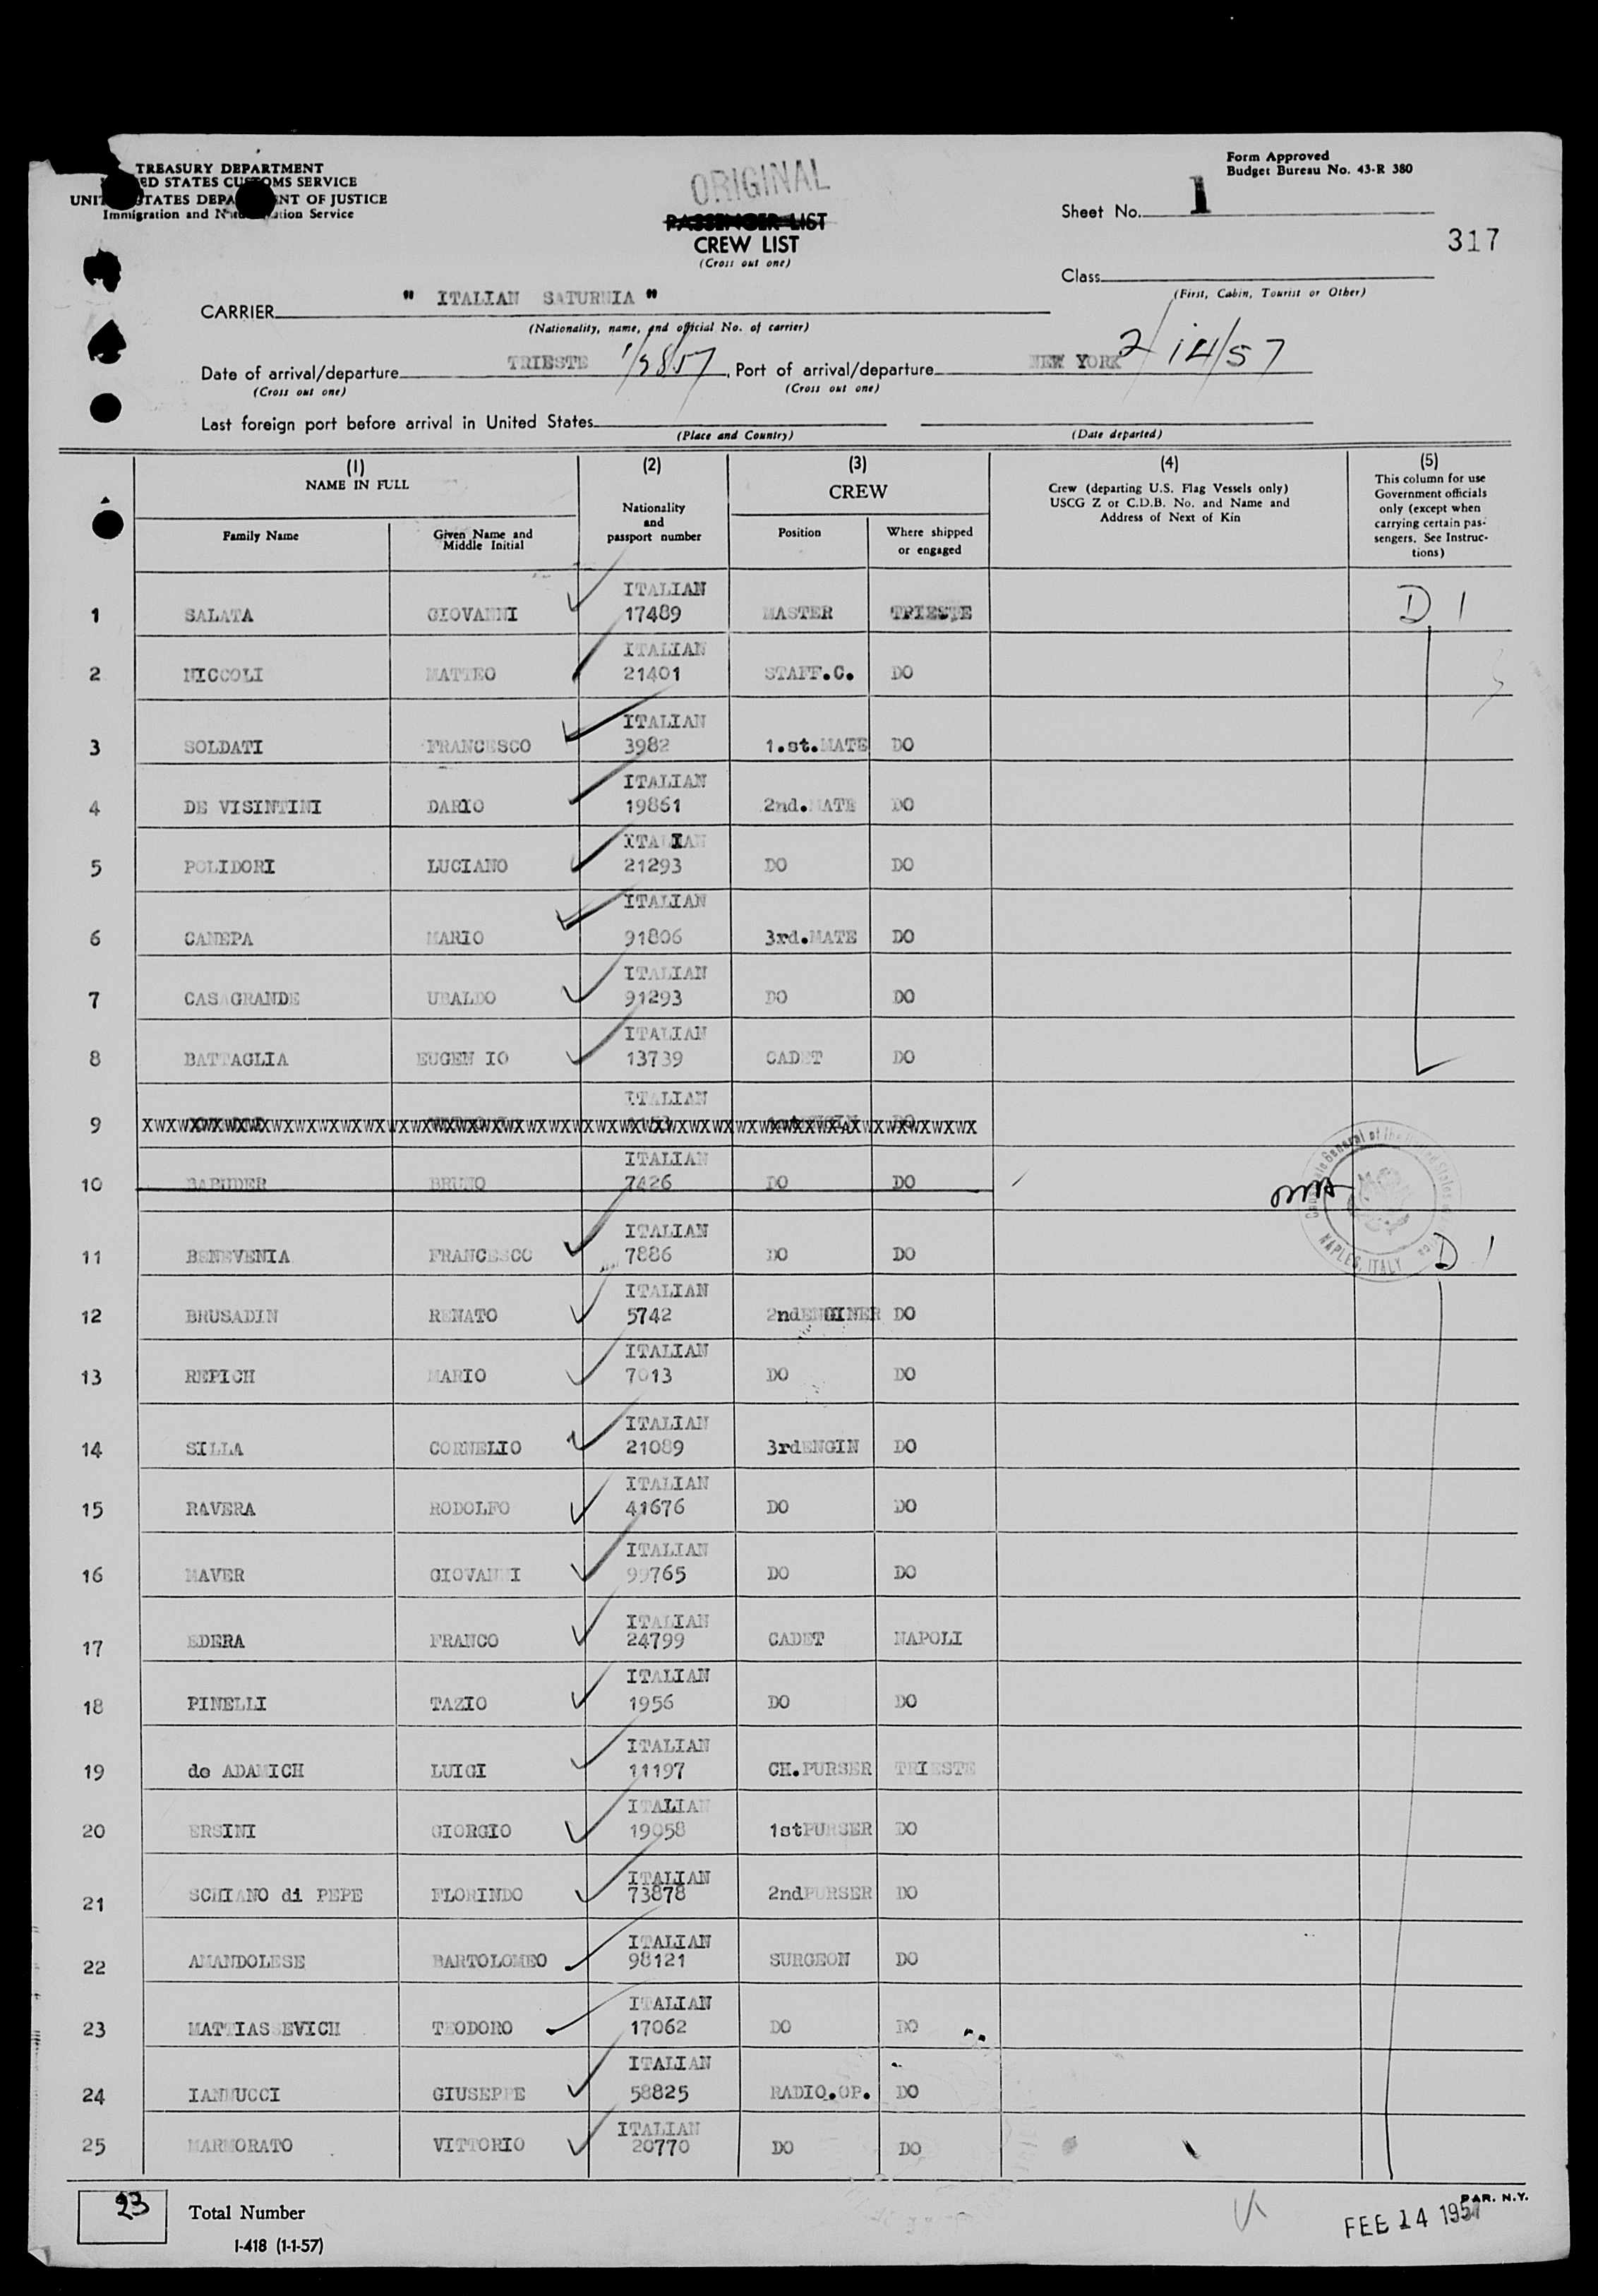 TREASURY DEPARTMENT
ED STATES CUSTOMS SERVICE
UNITED STATES DEPARTMENT OF JUSTICE
Immigration and Naturalization Service
ORIGINAL
PASSENGER LIST
CREW LIST
(Cross out one)
Form Approved
Budget Bureau No. 43-R 380
Sheet No. 1
317
Class
(First, Cabin, Tourist or Other)
CARRIER " ITALIAN SATURNIA "
(Nationality, name, and official No. of carrier)
Date of arrival/departure TRIESTE , Port of arrival/departure NEW YORK 2/14/57
(Cross out one) (Cross out one)
Last foreign port before arrival in United States
(Place and Country) (Date departed)
(1) (2) (3) (4) (5)
NAME IN FULL
Family Name
Given Name and
Middle Initial
Nationality
and
passport number
CREW
Position
Where shipped
or engaged
Crew (departing U.S. Flag Vessels only)
USCG Z or C.D.B. No. and Name and
Address of Next of Kin
This column for use
Government officials
only (except when
carrying certain pas-
sengers. See Instruc-
tions)
ITALIAN
1 SALATA GIOVANNI 17489 MASTER TRIESTE D 1
ITALIAN
2 NICCOLI MATTEO 21401 STAFF.C. DO
ITALIAN
3 SOLDATI FRANCESCO 3982 1.st.MATE DO
ITALIAN
4 DE VISINTINI DARIO 19861 2nd.MATE DO
ITALIAN
5 POLIDORI LUCIANO 21293 DO DO
ITALIAN
6 CANEPA MARIO 91806 3rd.MATE DO
ITALIAN
7 CASAGRANDE UBALDO 91293 DO DO
ITALIAN
8 BATTAGLIA EUGEN IO 13739 CADET DO
ITALIAN
9
ITALIAN
10 BABUDER BRUNO 7426 DO DO
ITALIAN
11 BENEVENIA FRANCESCO 7886 DO DO D 1
NAPLES, ITALY
ITALIAN
12 BRUSADIN RENATO 5742 2ndENGINER DO
ITALIAN
13 REPICH MARIO 7013 DO DO
ITALIAN
14 SILLA CORNELIO 21089 3rdENGIN DO
ITALIAN
15 RAVERA RODOLFO 41676 DO DO
ITALIAN
16 MAVER GIOVANNI 99765 DO DO
ITALIAN
17 EDERA FRANCO 24799 CADET NAPOLI
ITALIAN
18 PINELLI TAZIO 1956 DO DO
ITALIAN
19 de ADAMICH LUIGI 11197 CH.PURSER TRIESTE
ITALIAN
20 ERSINI GIORGIO 19058 1stPURSER DO
ITALIAN
21 SCHIANO di PEPE FLORINDO 73878 2ndPURSER DO
ITALIAN
22 AMANDOLESE BARTOLOMEO 98121 SURGEON DO
ITALIAN
23 MATTIASSEVICH TEODORO 17062 DO DO
ITALIAN
24 IANNUCCI GIUSEPPE 58825 RADIO.OP. DO
ITALIAN
25 MARMORATO VITTORIO 20770 DO DO
23 Total Number
I-418 (1-1-57)
PAR. N.Y.
FEB 14 1957